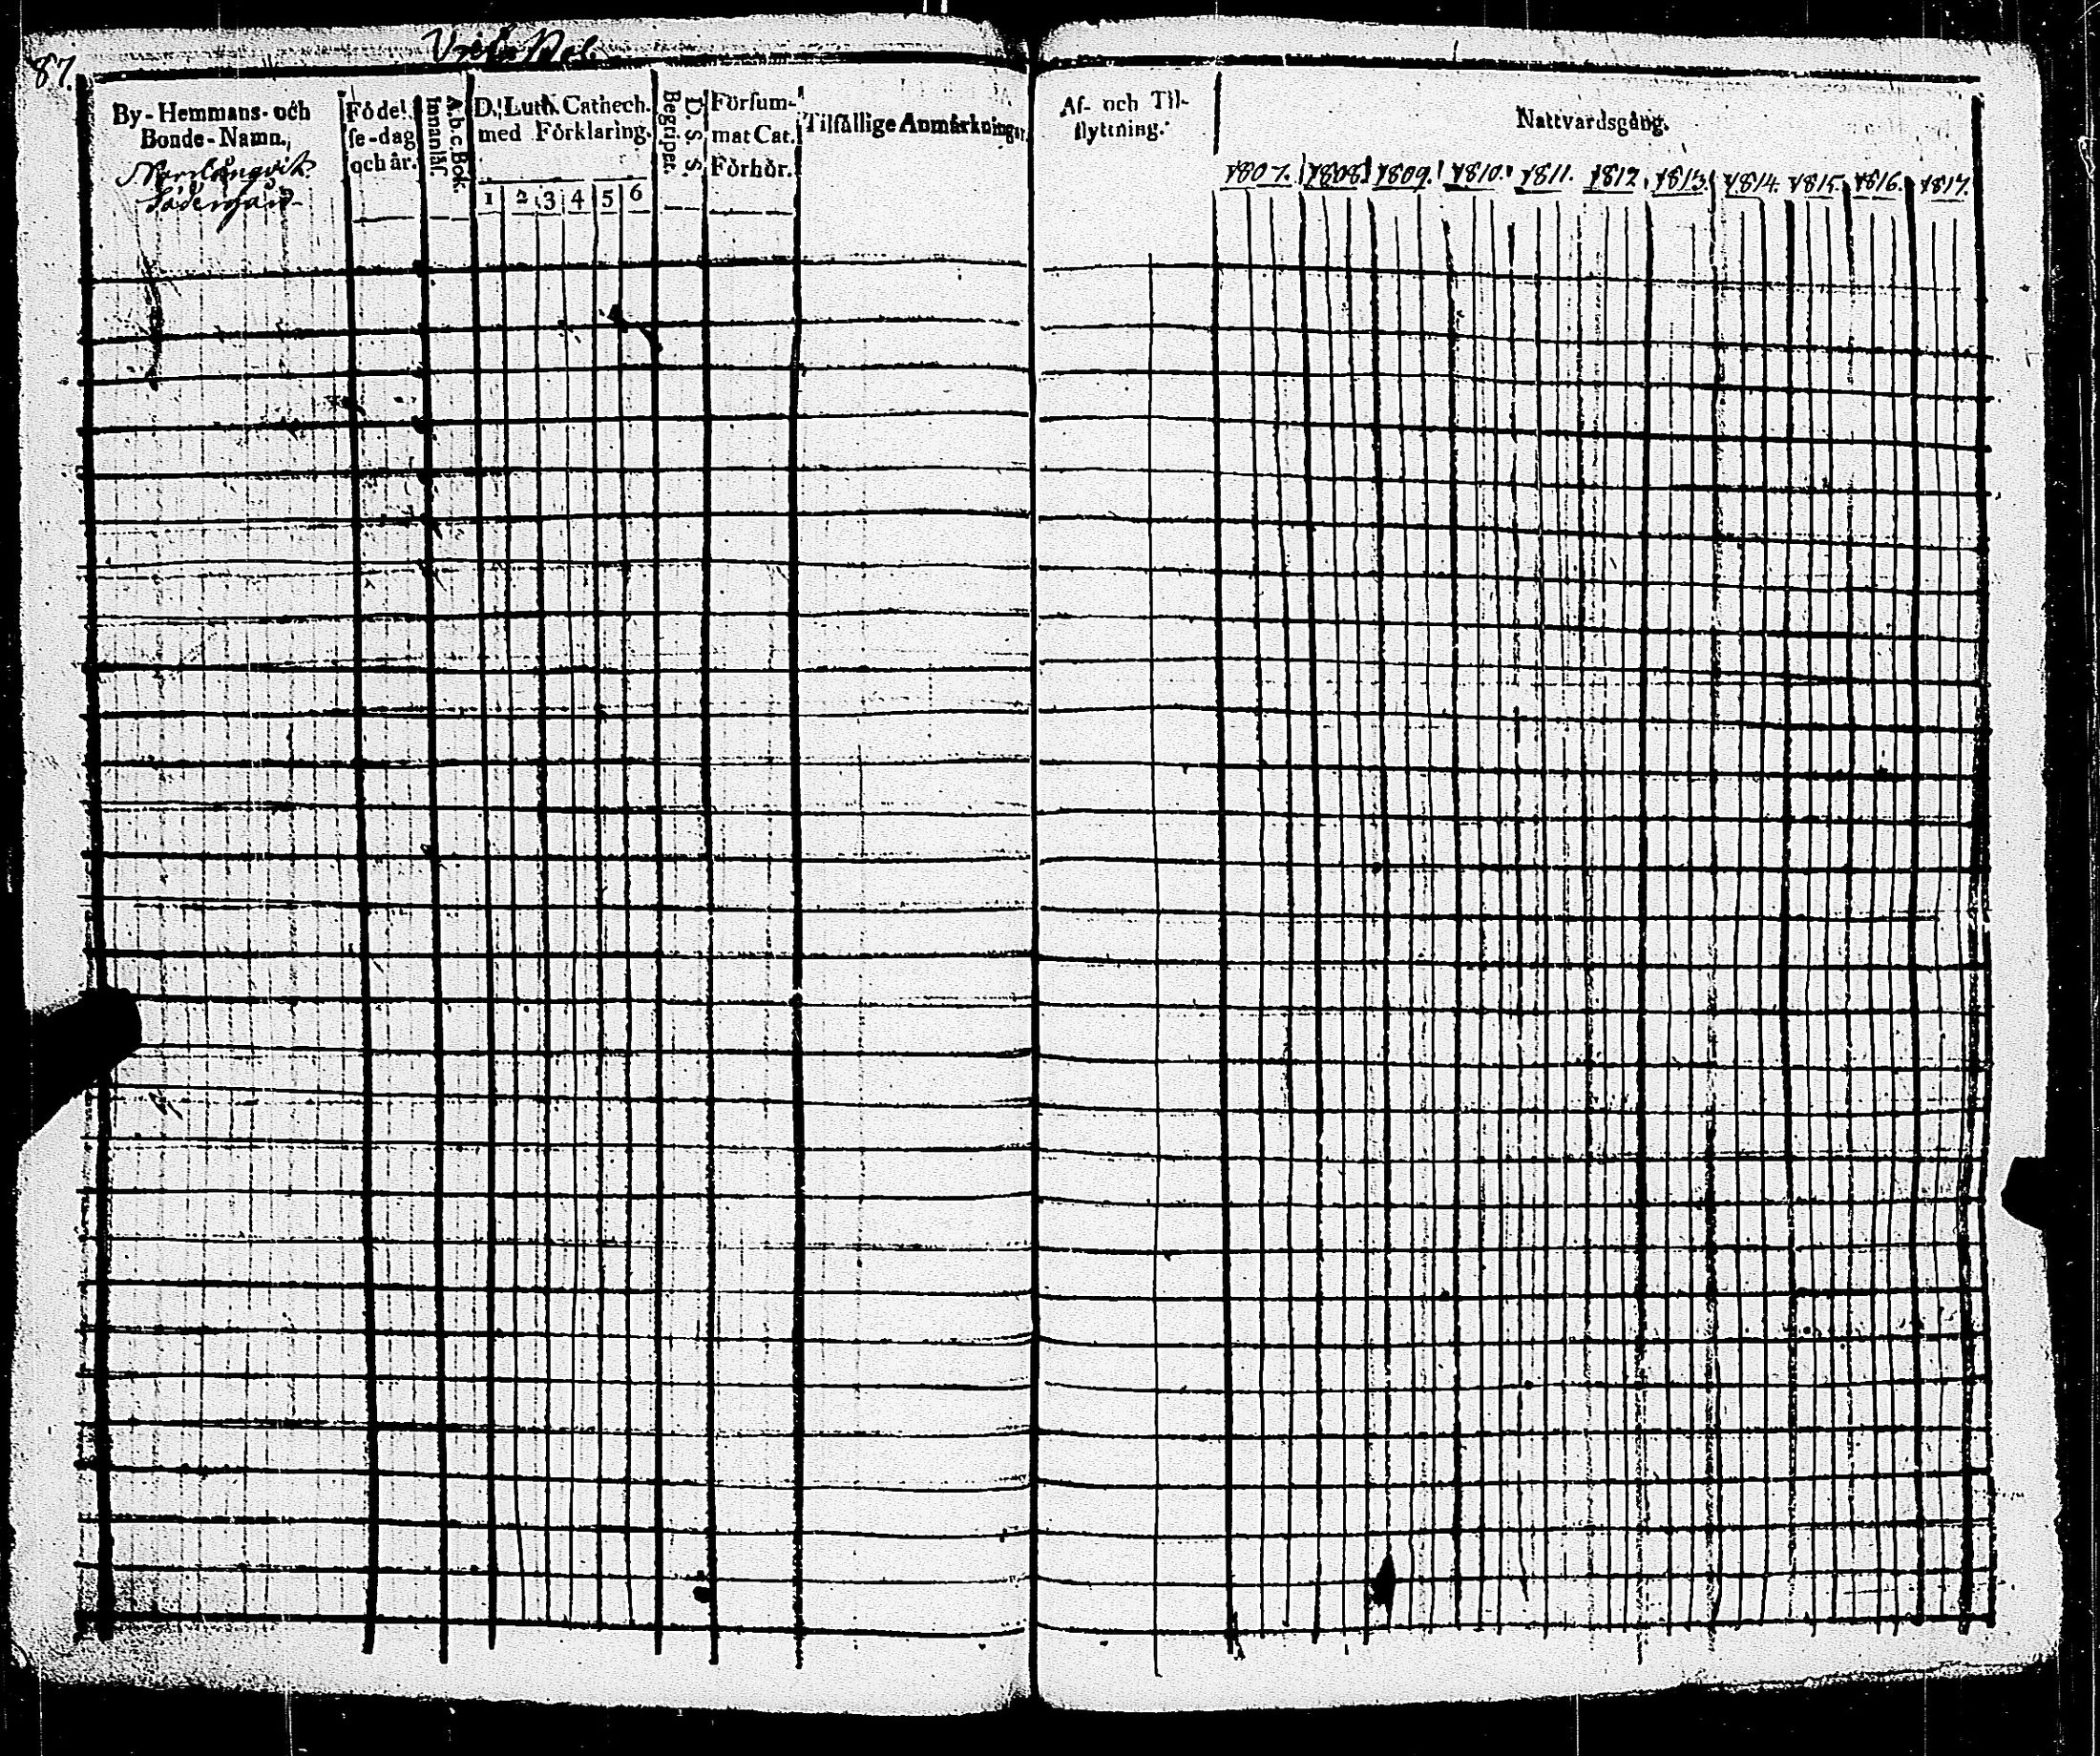 87.
By-Hemmans- och
Bonde-Namn.
Norrlångvik
Södergård
Födel-
se-dag
och år.
A.b.c.Bok.
Innanläs.
D. Luth. Cathech.
med Förklaring.
1 2 3 4 5 6
D. s. S.
Begriper.
Försum-
mat Cat.
Förhör.
Tilfällige Anmärkningar.
Af- och Til-
flyttning.
Nattvardsgång.
1807. 1808. 1809. 1810. 1811. 1812. 1813. 1814. 1815. 1816. 1817.